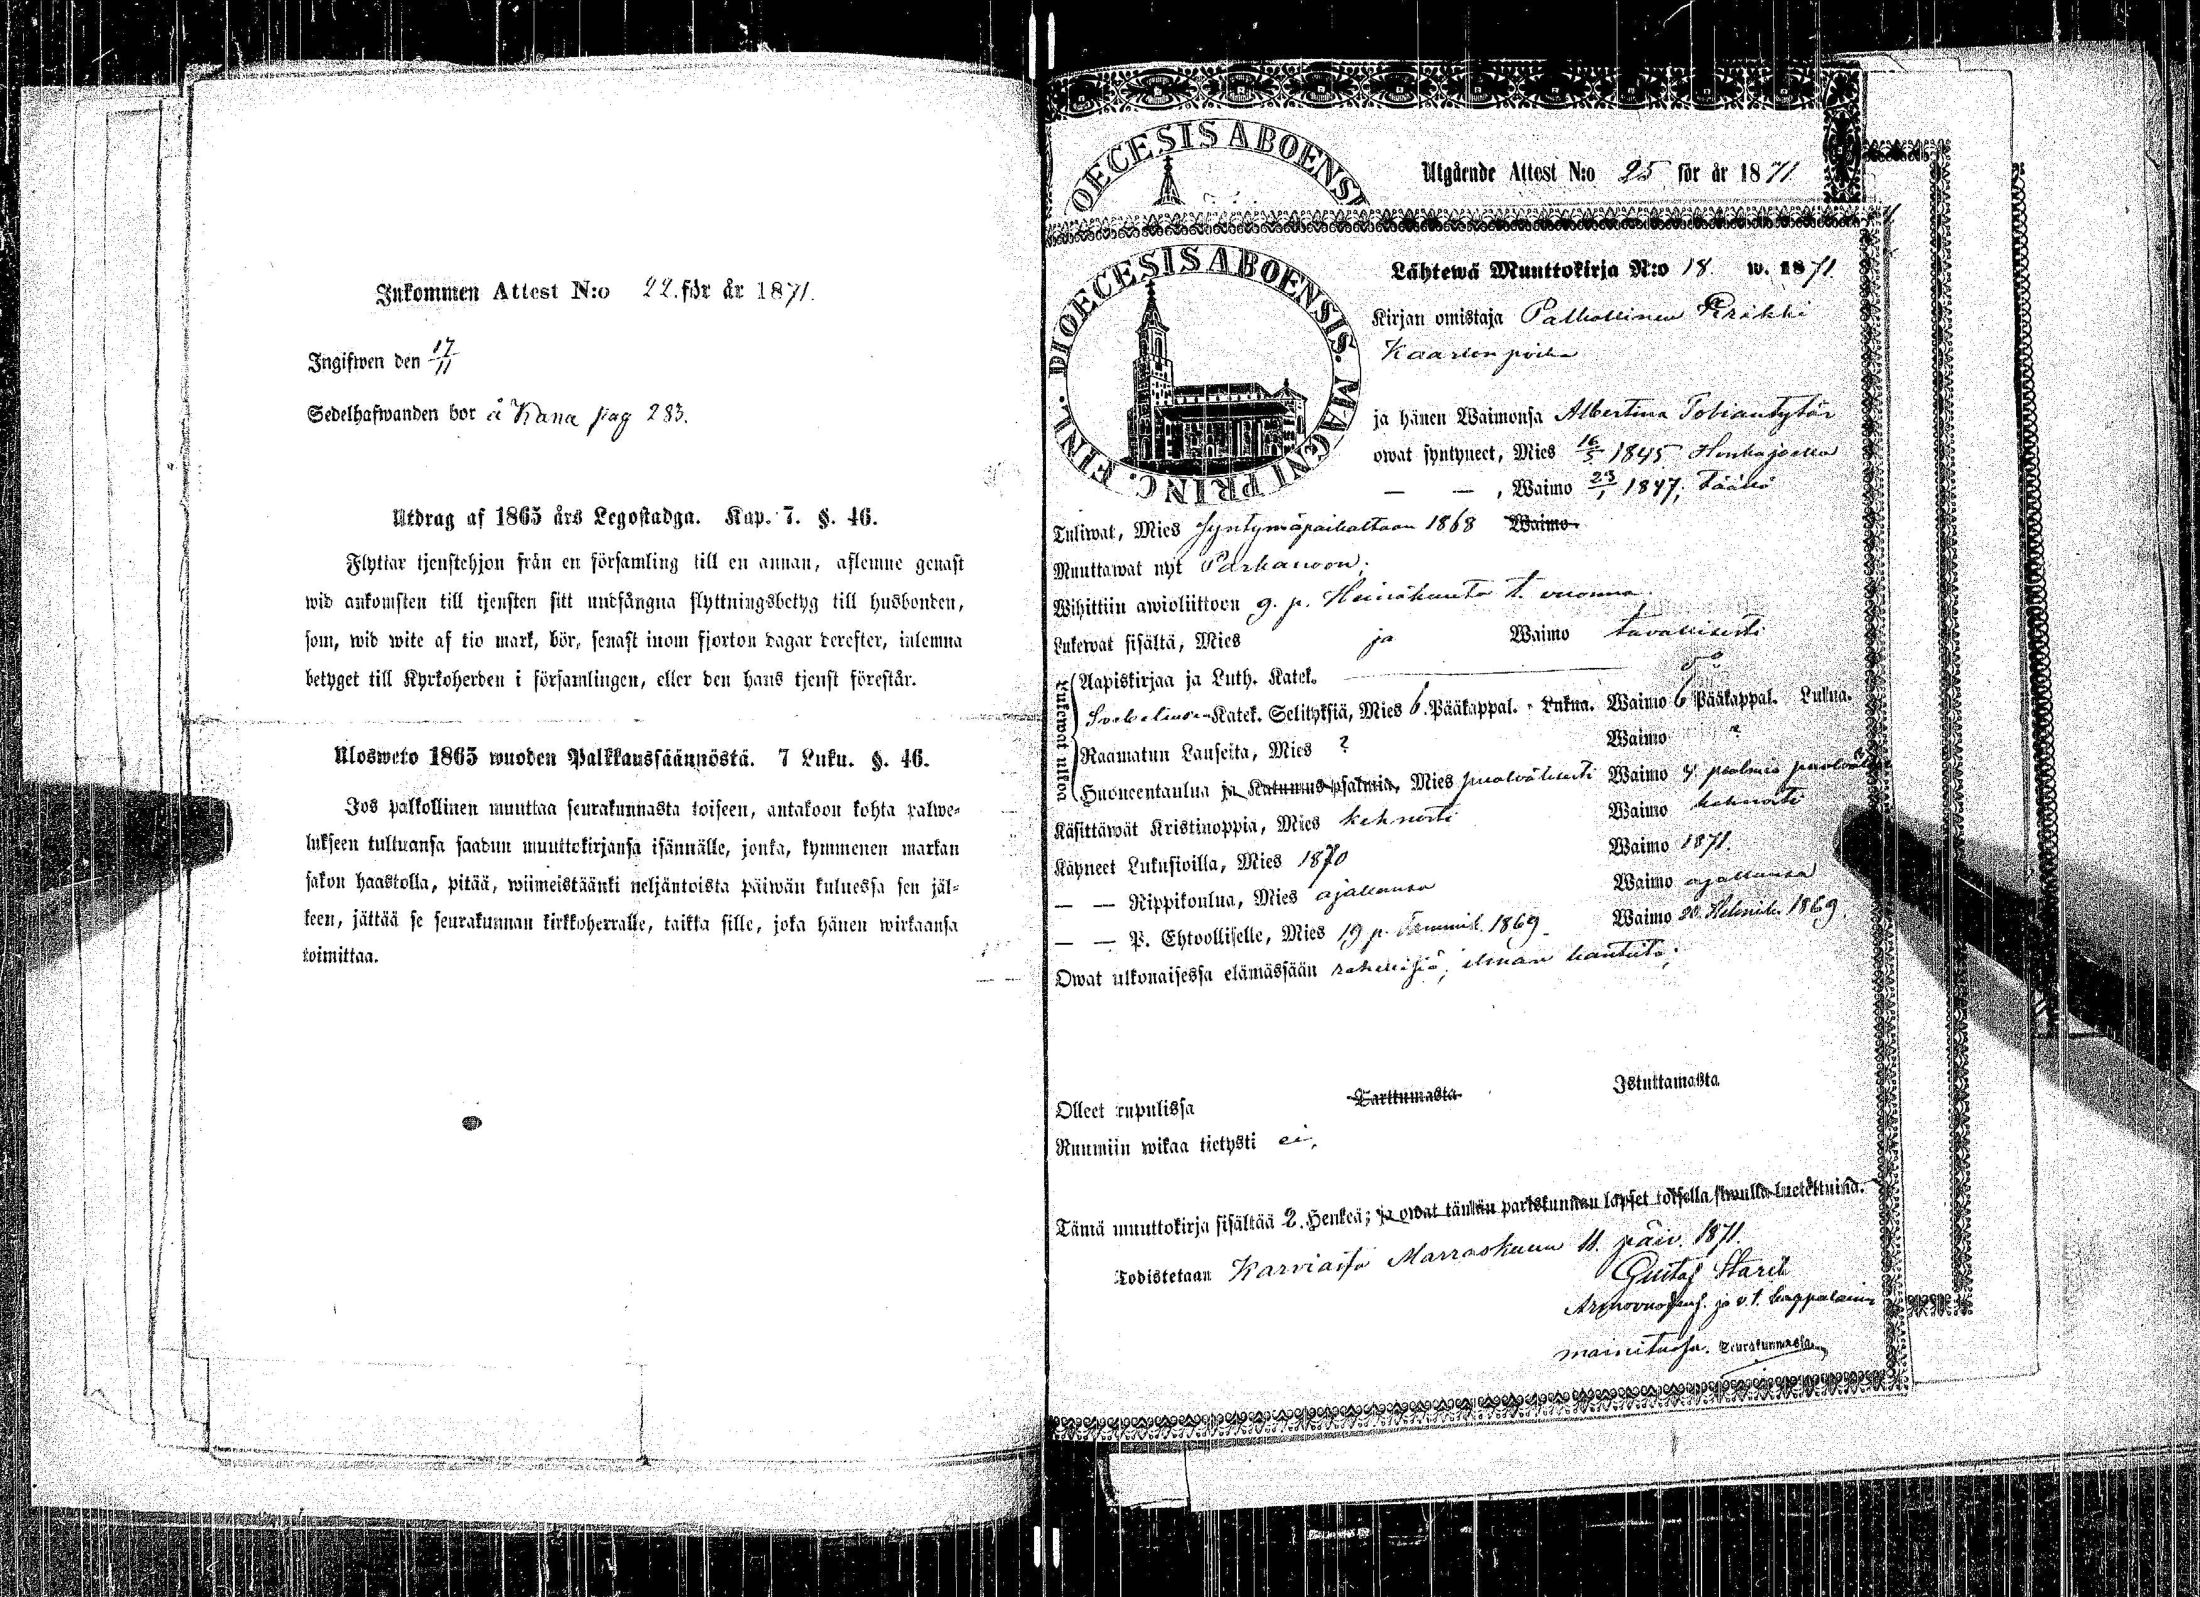 Inkommen Attest N:o 22. för år 1871.
Ingifwen den 17/11
Sedelhafwanden bor å Kana pag 283.
Utdrag af 1865 års Legostadga. Kap. 7. §. 46.
Flyttar tjenstehjon från en församling till en annan, aflemne genast
wid ankomsten till tjensten sitt undfångna flyttningsbetyg till husbonden,
som, wid wite af tio mark, bör, senast inom fjorton dagar derefter, inlemna
betyget till Kyrkoherden i församlingen, eller den hans tjenst förestår.
Ulosweto 1865 wuoden Palkkaussäännöstä. 7 Luku. §. 46.
Jos palkollinen muuttaa seurakunnasta toiseen, antakoon kohta palwe-
lukseen tultuansa saadun muuttokirjansa isännälle, jonka, kymmenen markan
sakon haastolla, pitää, wiimeistäänki neljäntoista päiwän kuluessa sen jäl-
keen, jättää se seurakunnan kirkkoherralle, taikka sille, joka hänen wirkaansa
toimittaa.
OECESIS ABOENSI
Utgående Attest N:o 25 för år 1871
DIOECESIS ABOENSIS. MAGNI PRINC. FINL.
Lähtewä Muuttokirja N:o 18. w. 1871
Kirjan omistaja Palkollinen Kerikki
Kaarlonpoika
ja hänen Waimonsa Albertina Tobiantytär
owat syntyneet, Mies 16/5 1845 Honkajoella
— — , Waimo 23/1 1847; täällä
Tuliwat, Mies Syntymäpaikaltaan 1868 Waimo
Muuttawat nyt Parkanoon;
Wihittiin awioliittoon 9. p. Heinäkuuta t. vuonna.
Lukewat sisältä, Mies ja Waimo tavallisesti
Lukewat ulkoa
Aapiskirjaa ja Luth. Katek.
Katek. Selityksiä, Mies 6. Pääkappal. Lukua. Waimo 6 Pääkappal. Lukua.
Raamatun Lauseita, Mies ? Waimo ?
Huoneentaulua ja Katumus-psalmia, Mies puolvälisesti Waimo
Käsittäwät Kristinoppia, Mies kehnosti Waimo kehnosti
Käyneet Lukusioilla, Mies 1870 Waimo 1871.
— — Rippikoulua, Mies ajallansa Waimo ajallansa
— — P. Ehtoolliselle, Mies 19 p. Tammik. 1869. Waimo 20. Helmik. 1869.
Owat ulkonaisessa elämässään rahellisiä, ilman kanteita;
Olleet rupulissa Tarttumasta Istuttamasta
Ruumiin wikaa tietysti ei,
Tämä muuttokirja sisältää 2. Henkeä; ja owat tämän pariskunnan lapset toisella siwulla lueteltuina.
Todistetaan Karviaissa Marraskuun 11. päiv. 1871.
Gustaf
Armovuodens. ja v.t. kappalainen
mainitussa. Seurakunnassa.